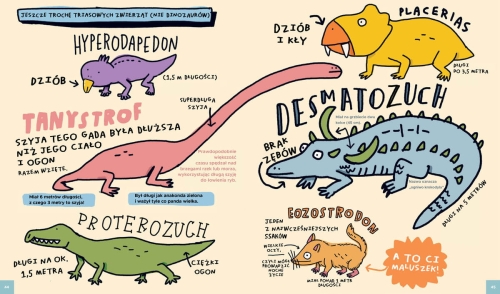 JESZCZE TROCHĘ TRIASOWYCH ZWIERZĄT (NIE DINOZAURÓW)
HYPERODAPEDON
DZIÓB
(1,5 m DŁUGOŚCI)
TANYSTROF
SZYJA TEGO GADA BYŁA DŁUŻSZA
NIŻ JEGO CIAŁO
I OGON
RAZEM WZIĘTE.
SUPERDŁUGA
SZYJA
Prawdopodobnie
większość
czasu spędzał nad
brzegami rzek lub morza,
wykorzystując długą szyję
do łowienia ryb.
Miał 6 metrów długości,
z czego 3 metry to szyja!
Był długi jak anakonda zielona
i ważył tyle co panda wielka.
PROTEROZUCH
DŁUGI NA OK.
1,5 METRA
CIĘŻKI
OGON
PLACERIAS
DZIÓB
I KŁY
DŁUGI
DO 3,5 METRA
DESMATOZUCH
Miał na grzbiecie dwa
kolce (45 cm).
BRAK
ZĘBÓW
DŁUGI NA 5 METRÓW
EOZOSTRODON
JEDEN
Z NAJWCZEŚNIEJSZYCH
SSAKÓW
WIELKIE
OCZY,
CZYLI MÓGŁ
PROWADZIĆ
NOCNE
ŻYCIE
A TO CI
MALUSZEK!